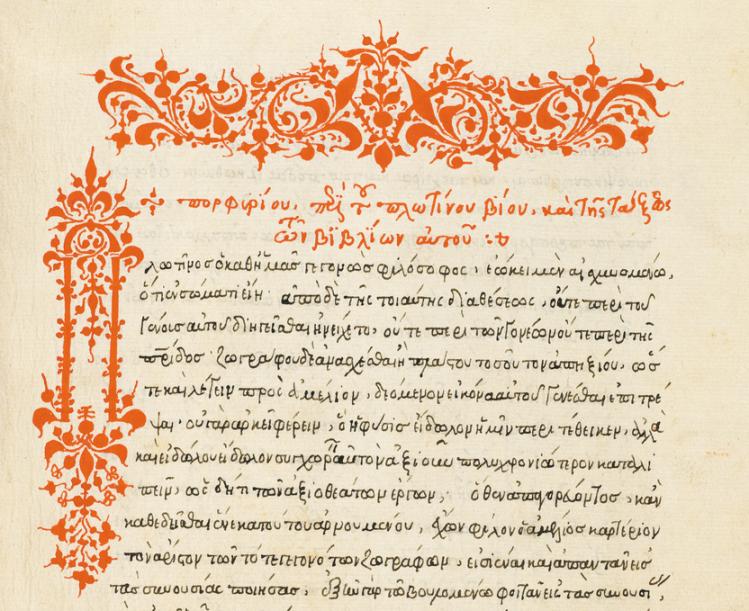 πορφυρίου, περὶ τοῦ πλωτίνου βίου, καὶ τῆς τάξεως
τῶν βιβλίων αὐτοῦ :
Πλωτῖνος ὁ καθ' ἡμᾶς γεγονὼς φιλόσοφος, ἐῴκει μὲν αἰσχυνομένῳ,
ὅτι ἐν σώματι εἴη. ἀπὸ δὲ τῆς τοιαύτης διαθέσεως, οὔτε περὶ τοῦ
γένους αὐτοῦ διηγεῖσθαι ἠνείχετο, οὔτε περὶ τῶν γονέων οὔτε περὶ τῆς
πατρίδος· ζωγράφου δὲ ἀνασχέσθαι ἢ πλάστου τοσοῦτον ἀπηξίου, ὥς
τε καὶ λέγειν πρὸς ἀμέλιον, δεόμενον εἰκόνα αὐτοῦ γενέσθαι ἐπιτρέ
ψαι· οὐ γὰρ ἀρκεῖ φέρειν, ὃ ἡ φύσις εἴδωλον ἡμῖν περιτέθεικεν, ἀλλὰ
καὶ εἰδώλου εἴδωλον συγχωρεῖν αὐτὸν ἀξιοῦν πολυχρονιώτερον καταλι
πεῖν, ὡς δή τι τῶν ἀξιοθεάτων ἔργων, ὅθεν ἀπαγορεύοντος, καὶ
καθεδεῖσθαι ἕνεκα τούτου ἀρνουμένου, ἔχων φίλον ὁ ἀμέλιος καρτέριον
τὸν ἄριστον τῶν τότε γεγονότων ζωγράφων, εἰσιέναι καὶ ἀπαντᾶν εἰς
τὰς συνουσίας ποιήσας, ἐξῆν γὰρ τῷ βουλομένῳ φοιτᾶν εἰς τὰς συνουσί